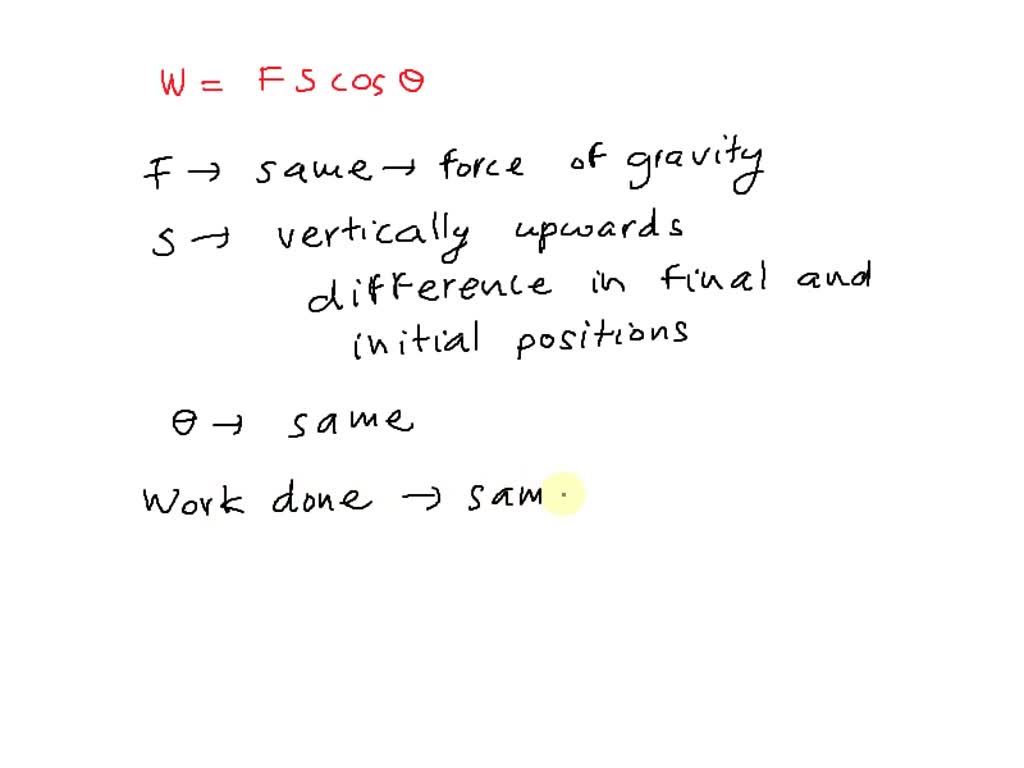 W = F S cos θ
F → same → force of gravity
S → vertically upwards
difference in final and
initial positions
θ → same
Work done → sam